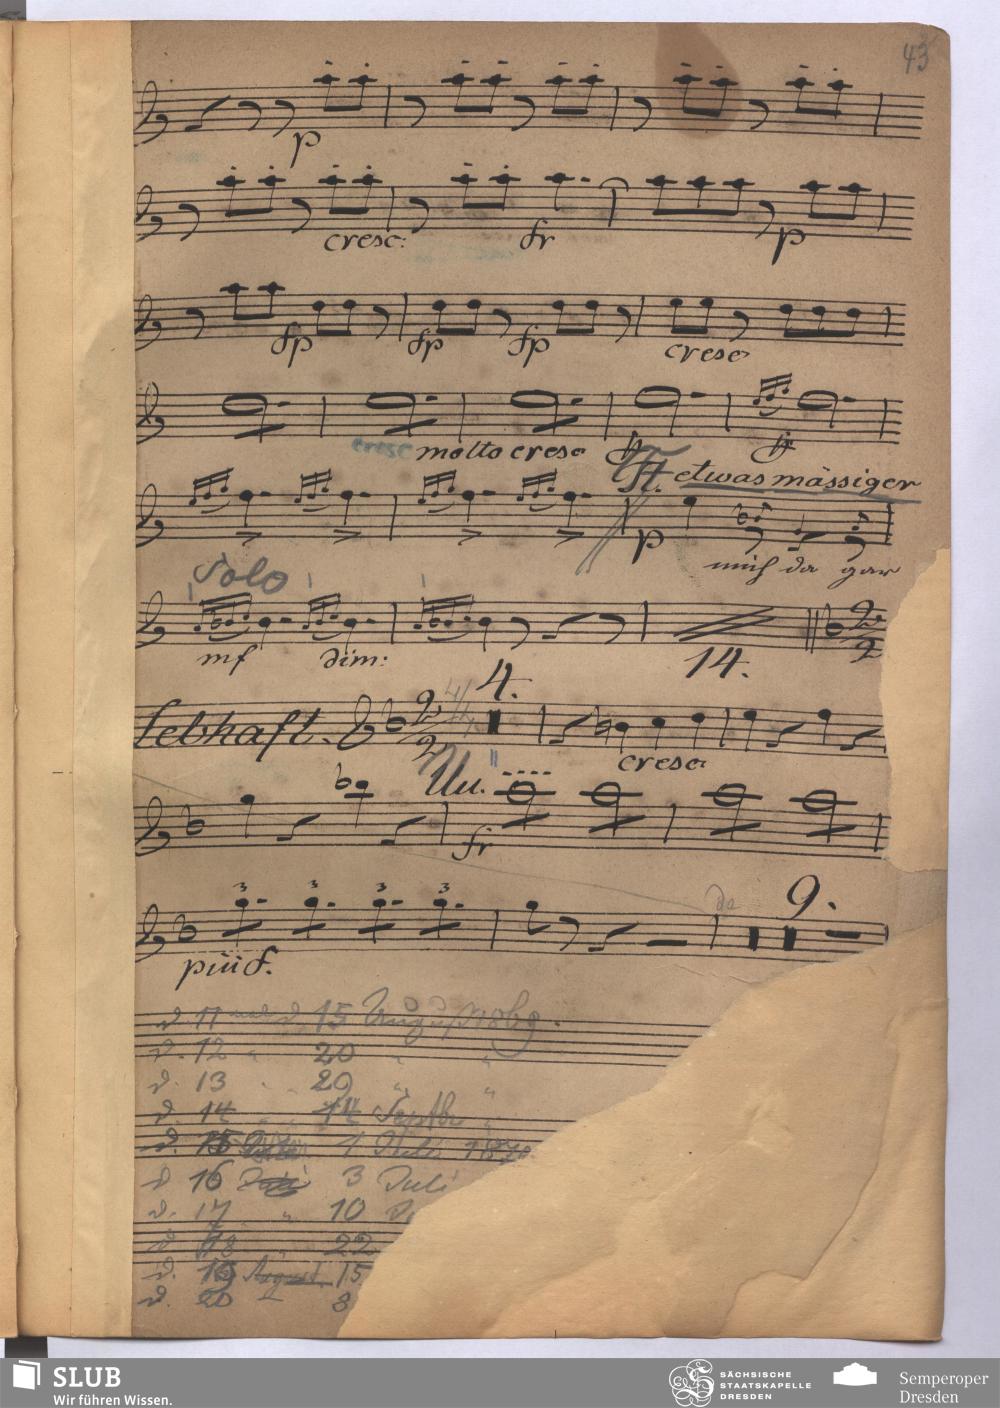 43
p
cresc: fr p
fp fp fp cresc
cresc molto cresc ff ff
etwas mässiger
p
mich da gar
Solo
mf dim:
14.
4.
Lebhaft. 2/2
cresc
Uu.
fr
3 3 3 3
9.
piuf.
d. 11 und d 15 August 1869.
d. 12 " 20 " "
d. 13 " 29 " "
d. 14 " 14 Septbr "
d. 15 1 Juli 1870
d 16 3 Juli
d. 17 " 10
d. 18 " 22
d. 19 August 15
d. 20 8
SLUB
Wir führen Wissen.
SÄCHSISCHE
STAATSKAPELLE
DRESDEN
Semperoper
Dresden